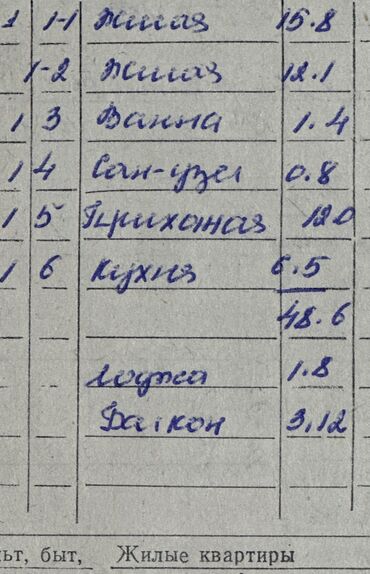 1 1-1 Жилая 15.8
1-2 Жилая 12.1
1 3 Ванна 1.4
1 4 Сан-узел 0.8
1 5 Прихожая 12.0
1 6 Кухня 6.5
48.6
Лоджа 1.8
Балкон 3.12
быт, Жилые квартиры